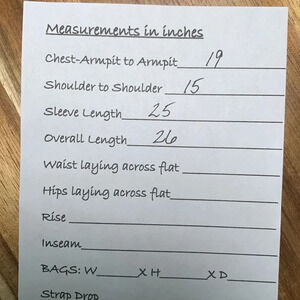 Measurements in inches
Chest-Armpit to Armpit 19
Shoulder to Shoulder 15
Sleeve Length 25
Overall Length 26
Waist laying across flat
Hips laying across flat
Rise
Inseam
BAGS: W______X H______X D______
Strap Drop